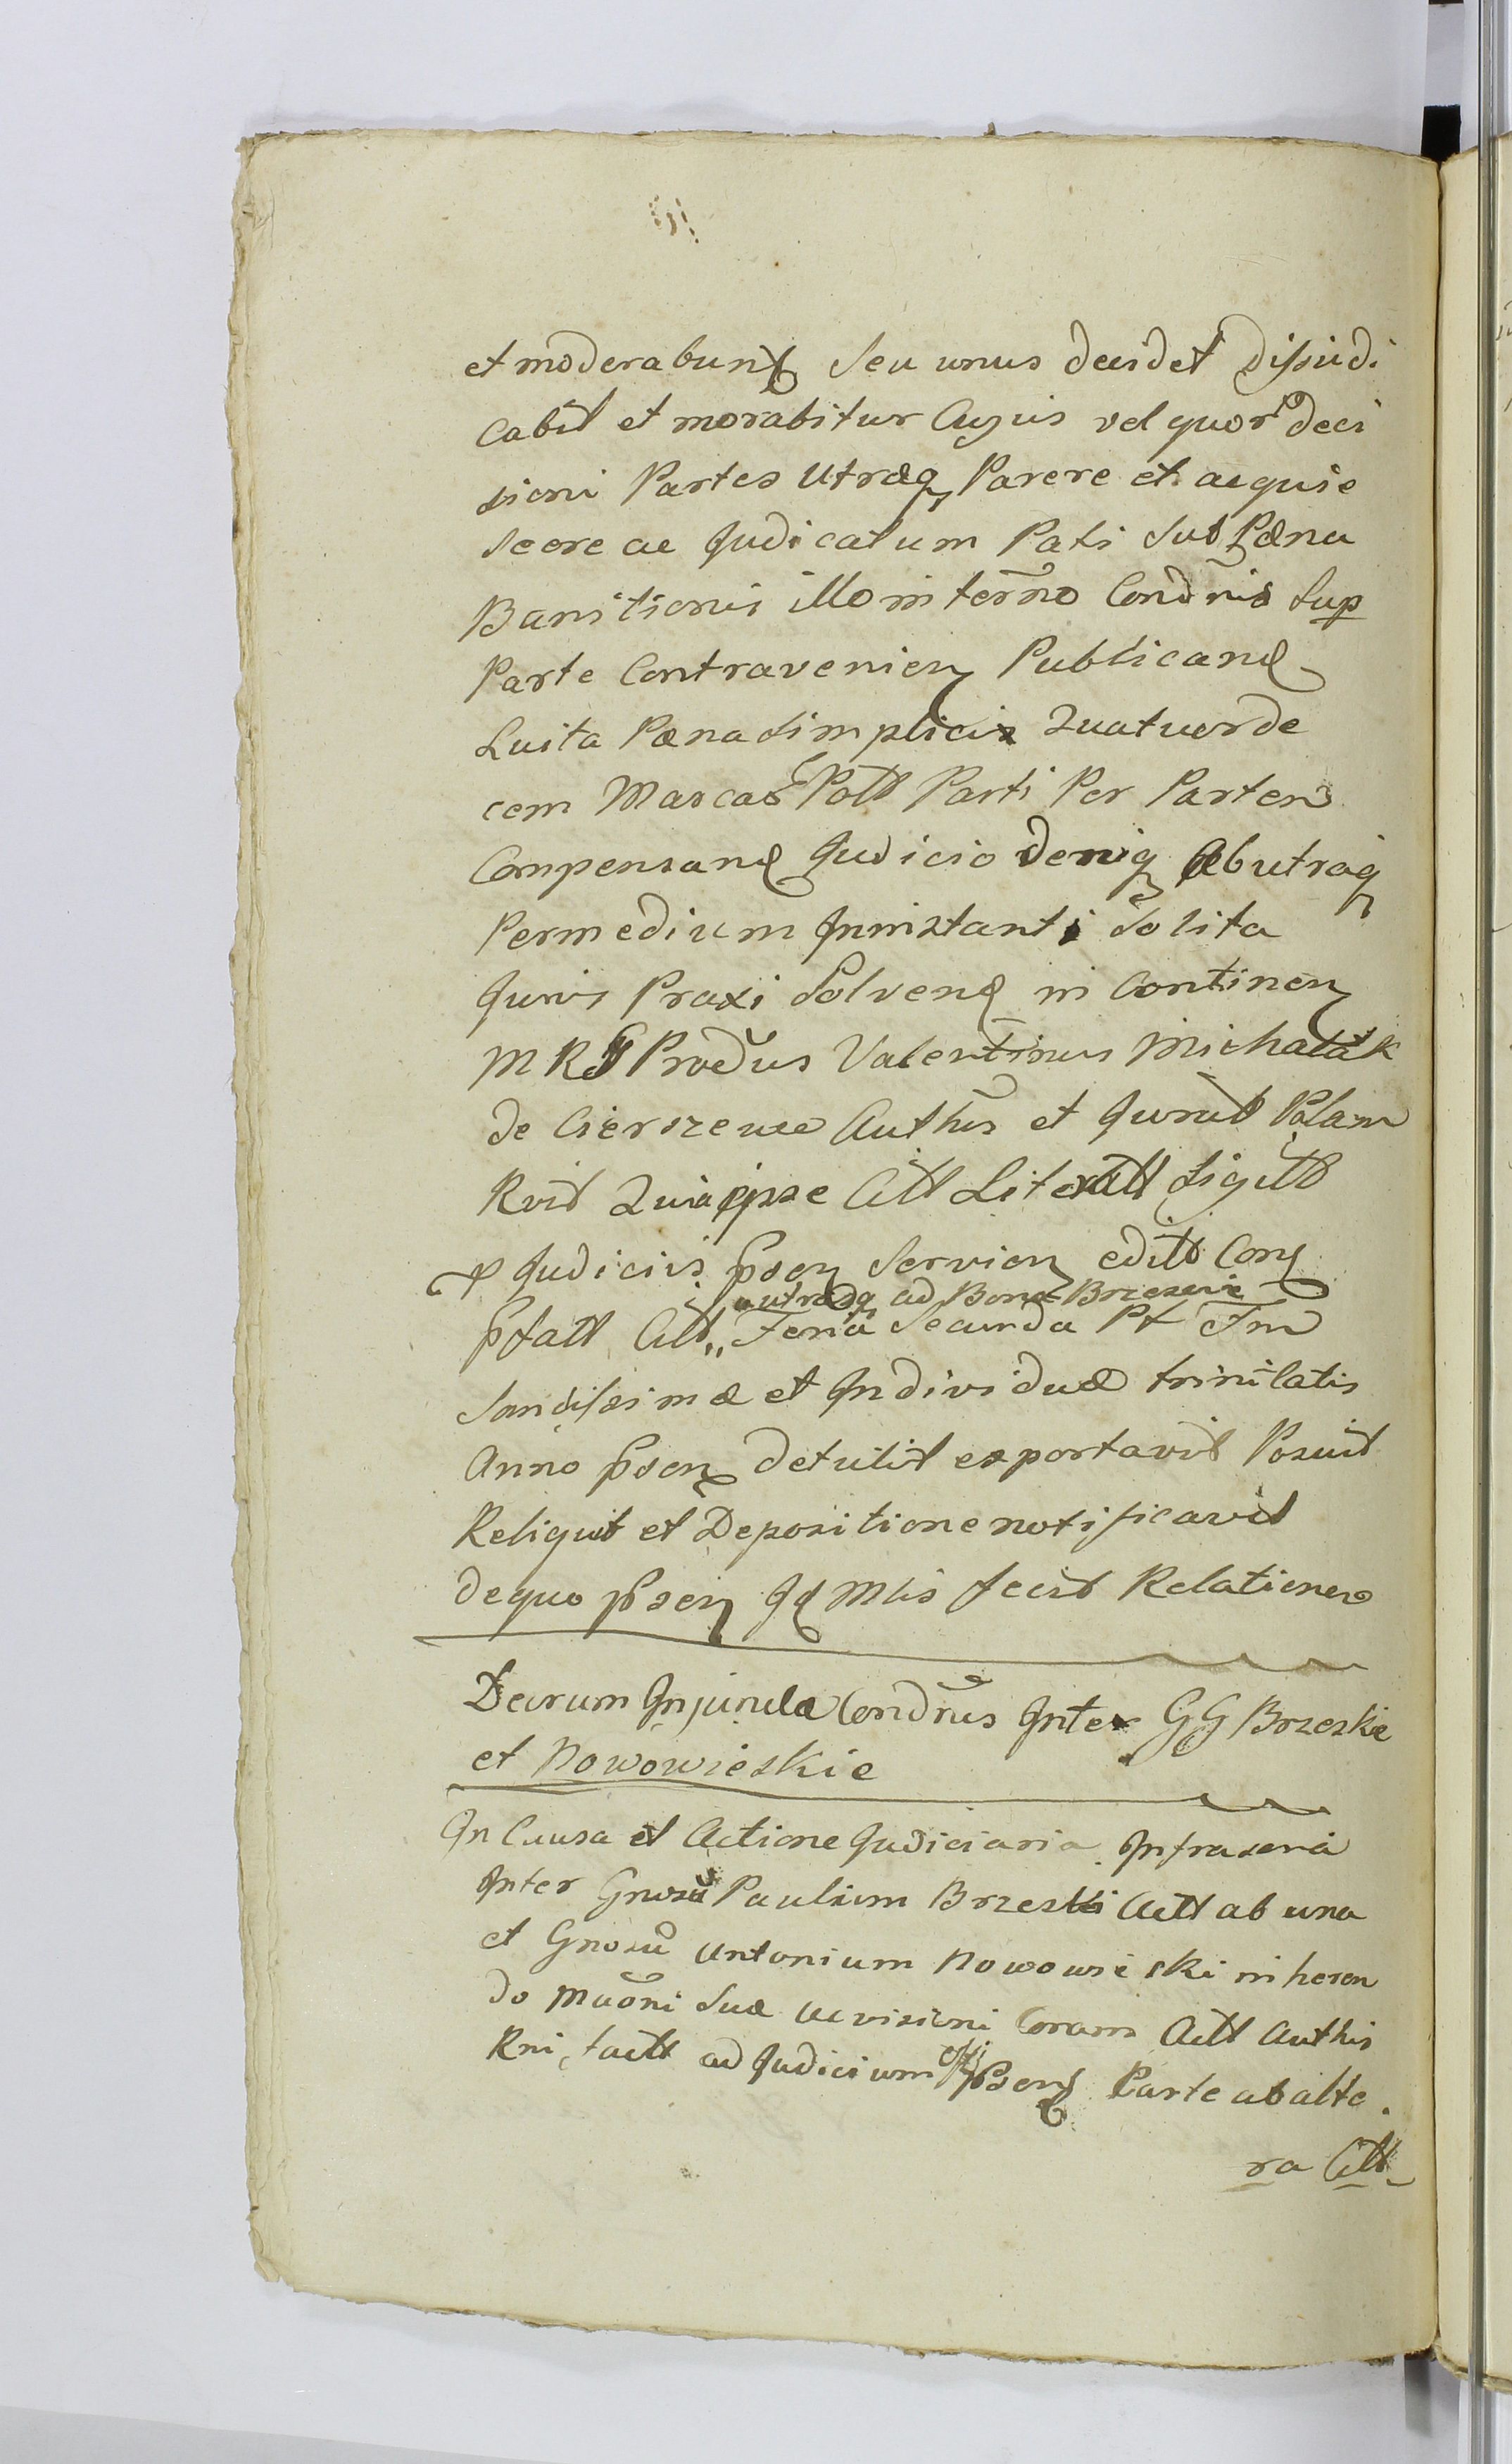 et moderabunt Seu unus decidet Dijudi
cabit et morabitur Cujus vel quor deci
sioni Partes Utraq Parere et acquie
scere ac Judicatum Pati Sub Pæna
Banitionis illo in termno Condnis sup
Parte Contravenien Publicand
Luita Pæna simplicis Quatuorde
cem Marcas Poll Parti Per Partem
Compensand Judicio deniq Ab utraq
Per medium In instanti Solita
Juris Praxi Solvend in Continen
M R S Produs Valentinus Michalak
de Cierszewo Authus et Jurat Palam
Rvit Quia ipse Citt Literatt Sigitt
p Judiciis psen Servien editt Con
utrasq ad Bona Brzescie
pfatt Citt,, Feria Secunda Pt Fm
Sanctissimæ et Individuæ trinitatis
Anno psen Detulit exportavit Posuit
Reliquit et Depositione notificavit
de quo psen Jd Mlis fecit Relationem
Decrum Injuncta Condnis Inter GG Brzeskie
et Nowowieskie
In Causa et Actione Judiciaria Infrascria
Inter Gnosu Paulum Brzeski Actt ab una
et Gnosu Antonium Nowowieski inheren
do Muoni Suæ ac visioni Coram Actt Authis
Rni factt ad Judicium psens Parte ab alte
ra Citt